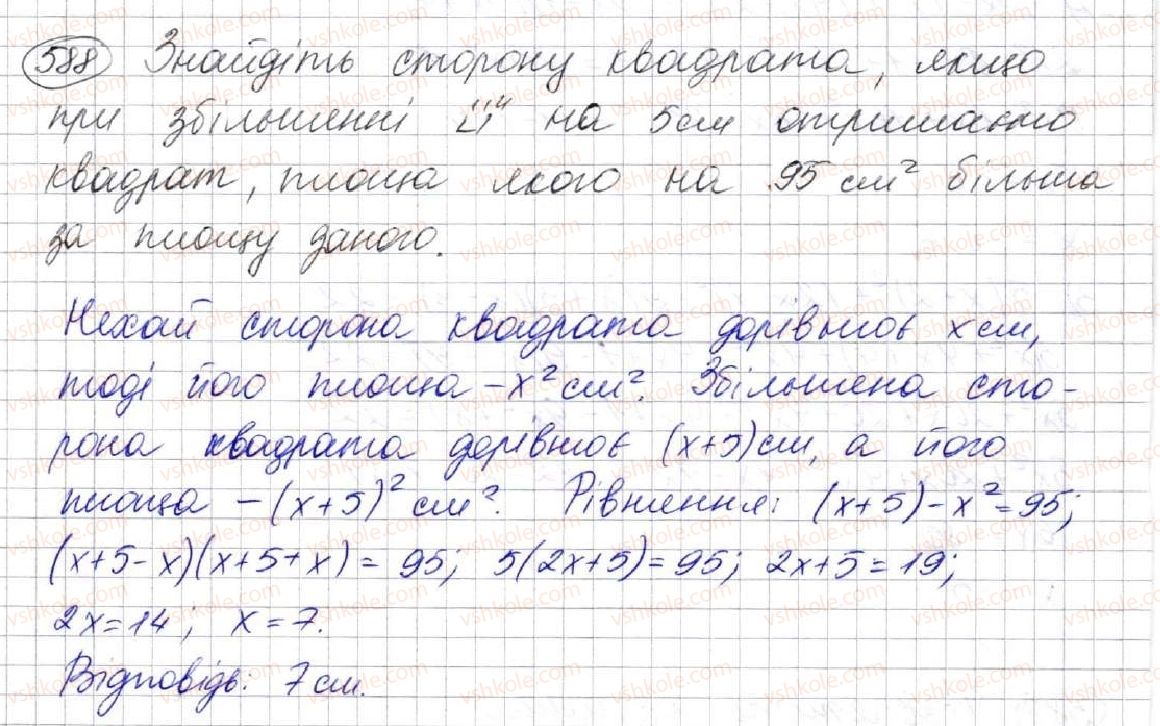 588 Знайдіть сторону квадрата, якщо
при збільшенні її на 5 см отримаємо
квадрат, площа якого на 95 см² більша
за площу даного.
Нехай сторона квадрата дорівнює x см,
тоді його площа – x² см². Збільшена сто-
рона квадрата дорівнює (x+5) см, а його
площа – (x+5)² см². Рівняння: (x+5) – x² = 95;
(x+5-x)(x+5+x) = 95; 5(2x+5) = 95; 2x+5 = 19;
2x = 14; x = 7.
Відповідь: 7 см.